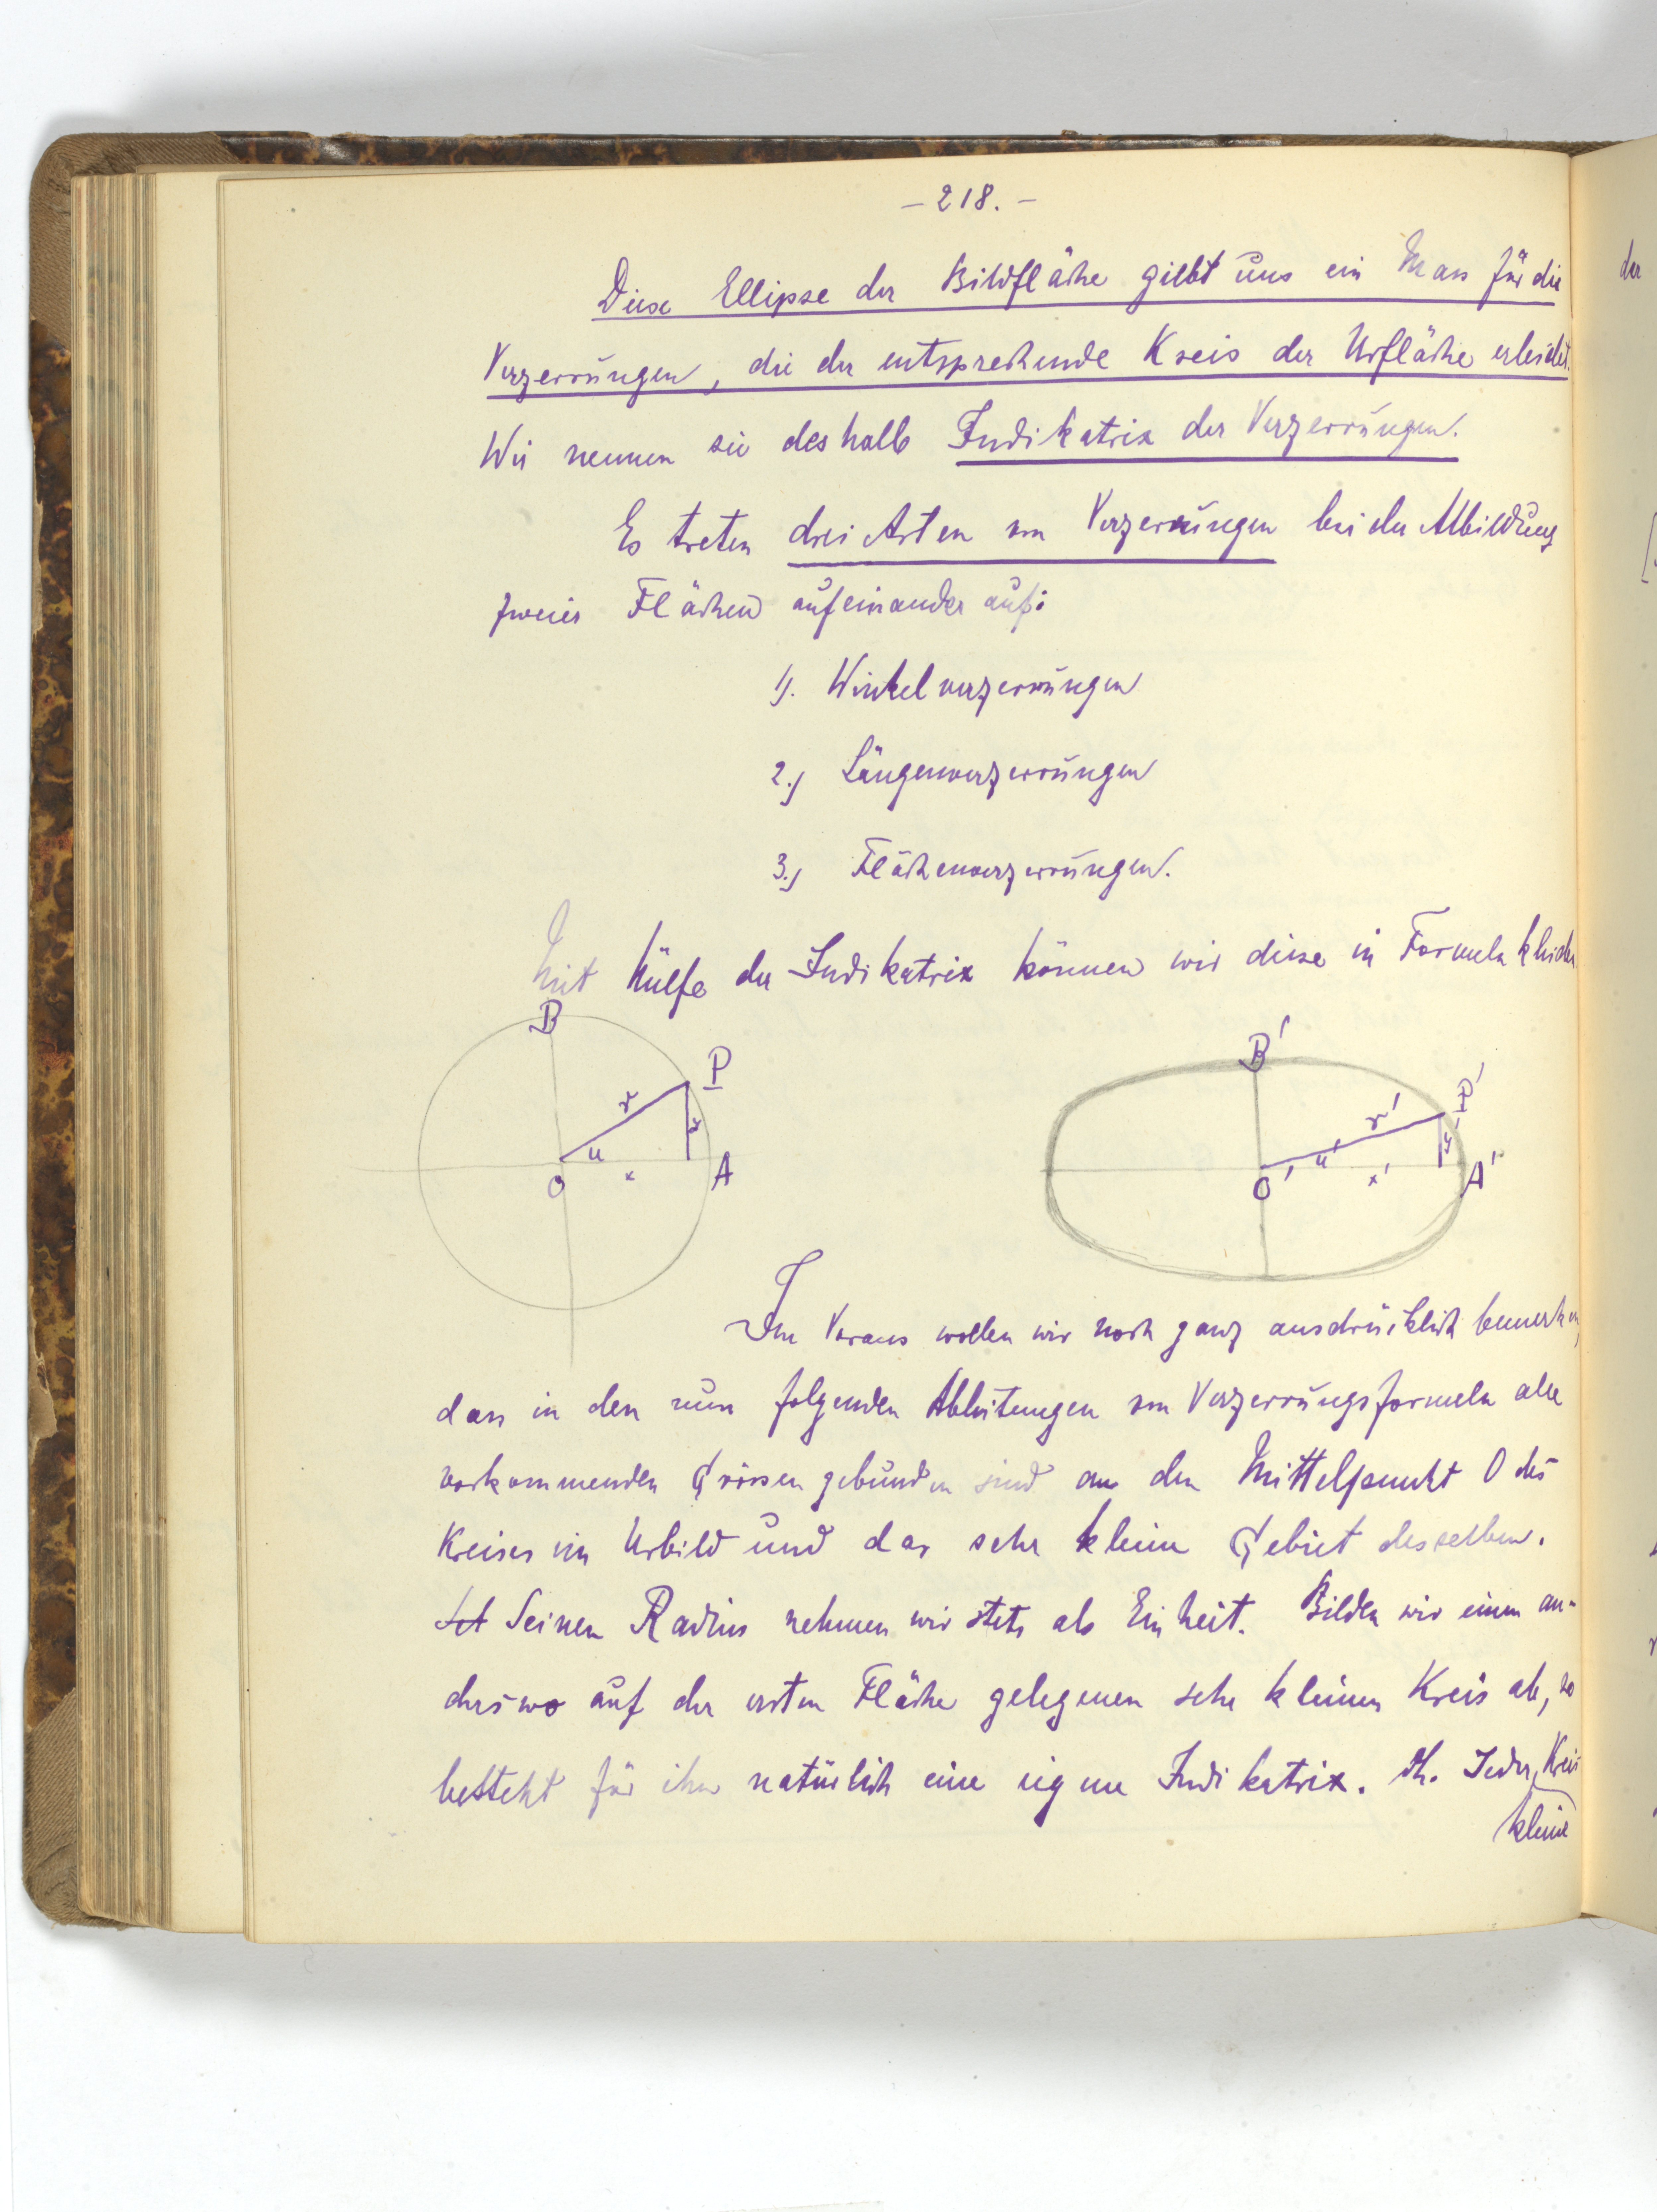 – 218. –
Diese Ellipse der Bildfläche giebt uns ein Mass für die
Verzerrungen, die der entsprechende Kreis der Urfläche erleidet.
Wir nennen sie deshalb Indikatrix der Verzerrungen.
Es treten drei Arten von Verzerrungen bei der Abbildung
zweier Flächen aufeinander auf:
1). Winkelverzerrungen
2.) Längenverzerrungen
3.) Flächenverzerrungen.
Mit Hülfe der Indikatrix können wir diese in Formeln kleiden
B
P
r
y
u
O
x
A
B'
P'
r'
y'
u'
O'
x'
A'
Im Voraus wollen wir noch ganz ausdrücklich bemerken,
dass in den nun folgenden Ableitungen von Verzerrungsformeln alle
vorkommenden Grössen gebunden sind an den Mittelpunkt O des
Kreises im Urbild und das sehr kleine Gebiet desselben.
Seinen Radius nehmen wir stets als Einheit. Bilden wir einen an-
derswo auf der ersten Fläche gelegenen sehr kleinen Kreis ab, so
besteht für ihn natürlich eine eigene Indikatrix. Jeder Kreis
kleine
der